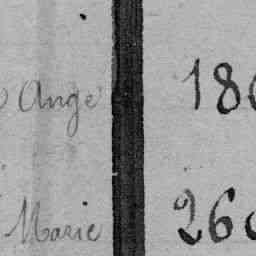 Ange 186
Marie 260